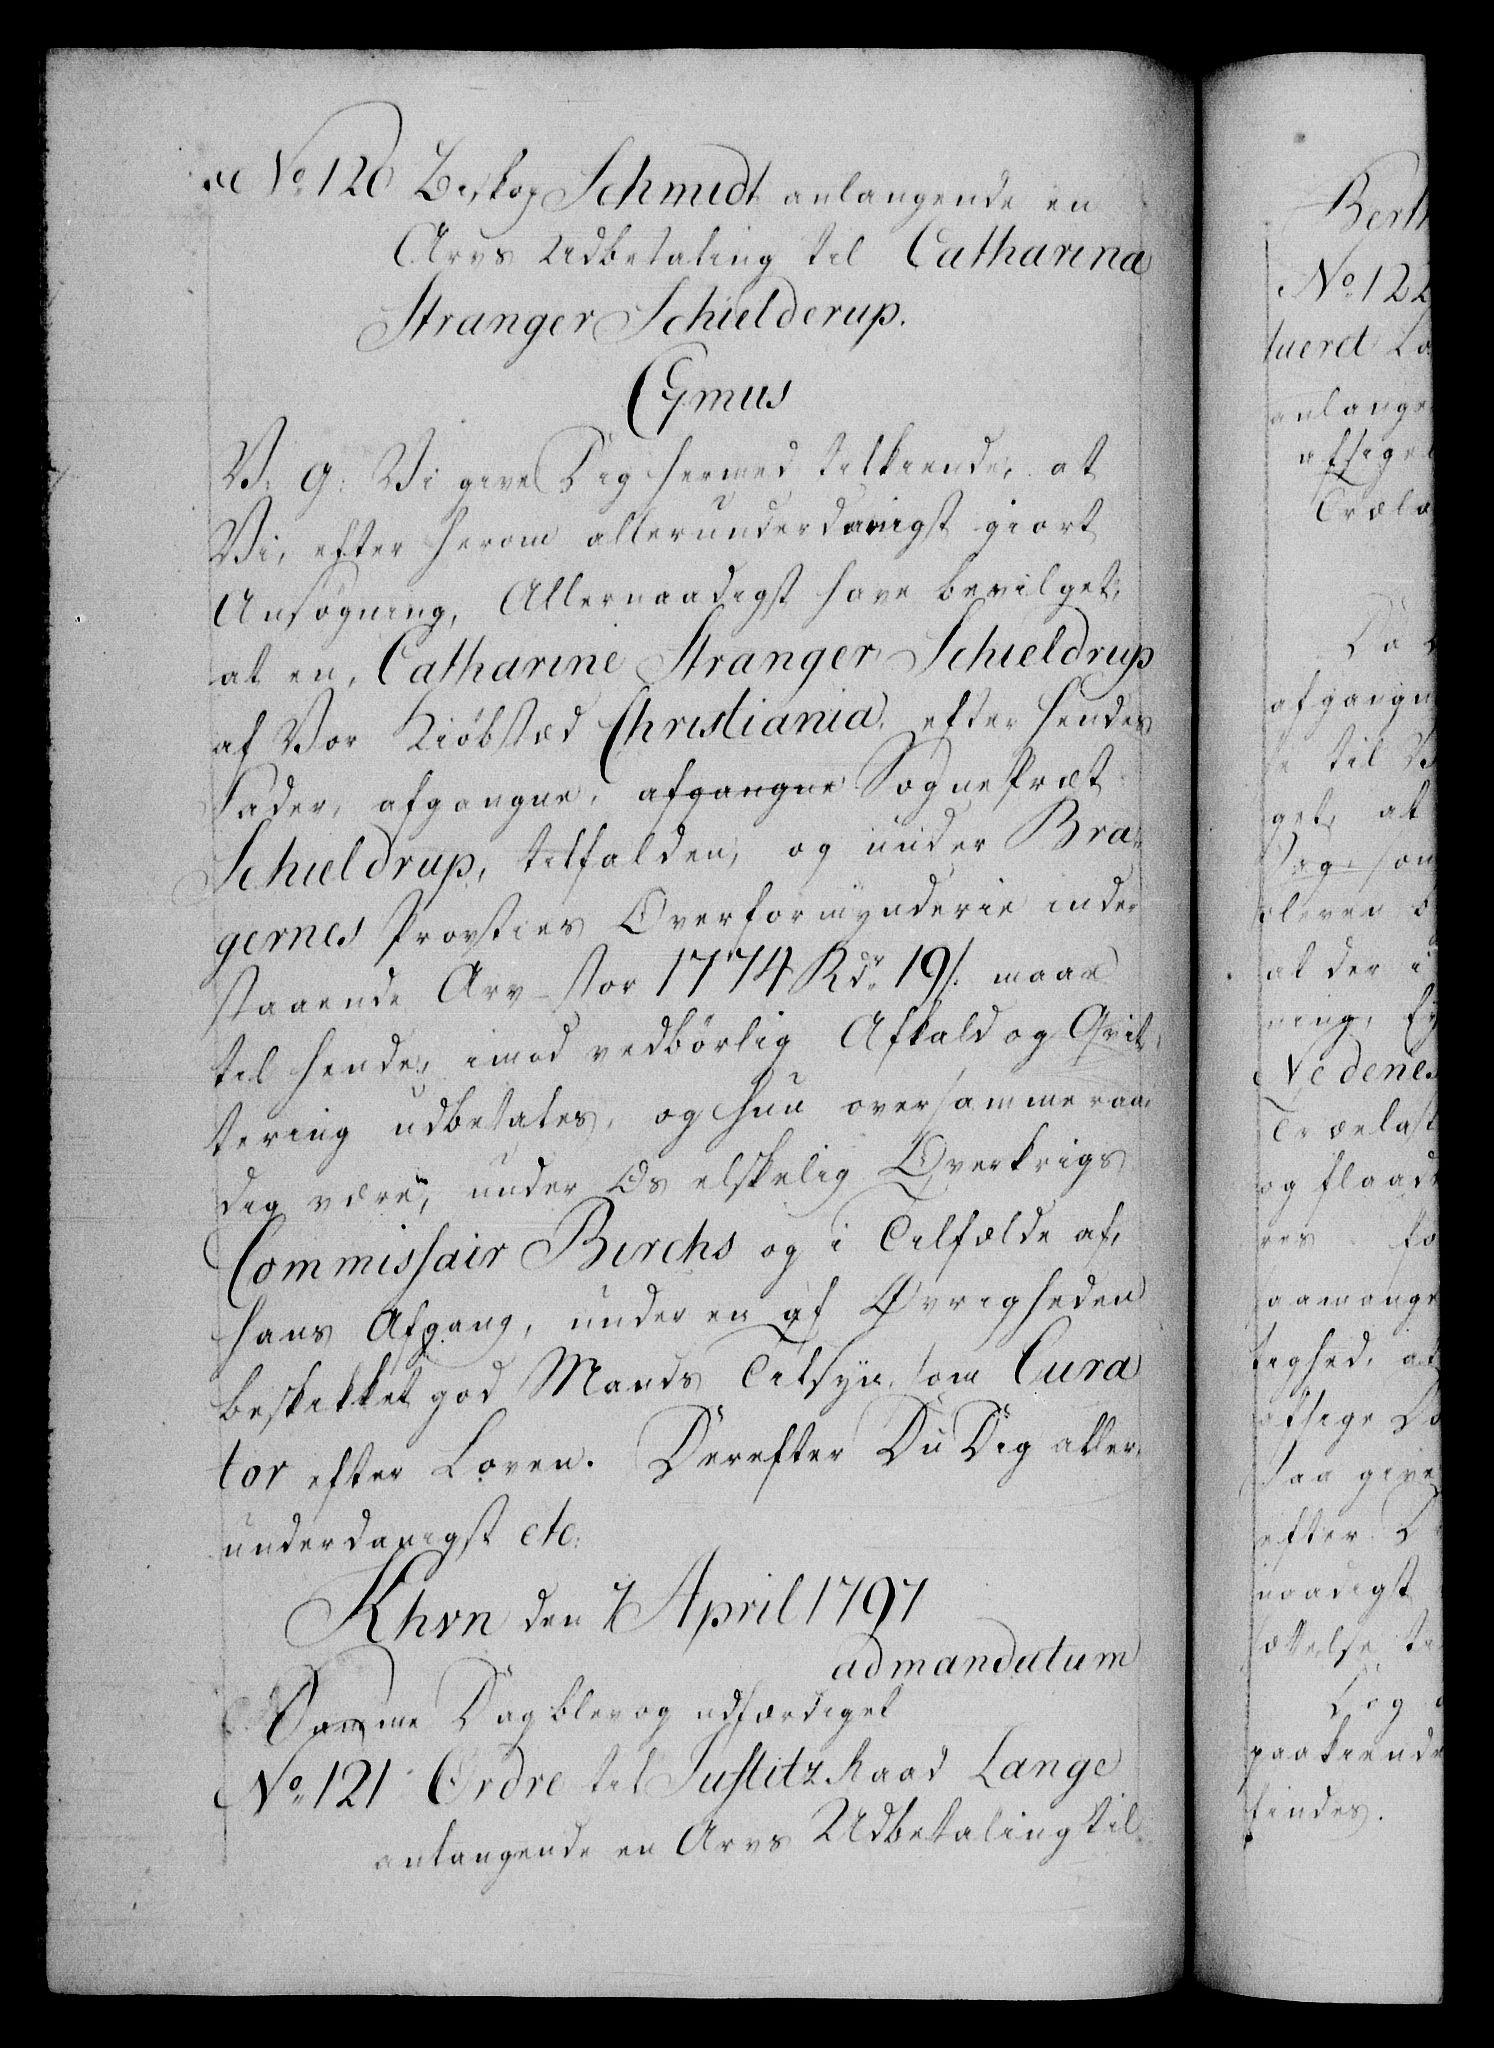 No 120 Biskop Schmidt anlangende en
Arvs Udbetaling til Catharina
Stranger Schielderup.
C7mus
V: G: Vi give Dig hermed tilkiende, at
Vi, efter herom allerunderdanigst giort
Ansøgning, Allernaadigst have bevilget,
at en, Catharine Stranger Schieldrup
af Vor Kiöbstæd Christiania, efter hendes
Fader, afgangne, afgangne SognePræst
Schieldrup, tilfalden, og under Bra-
gernes Provsties Overformynderie inde-
staaende Arv stor 1774 Rdr 19/. maae
til hende, imod vedbörlig Afkald og Qvit-
tering udbetales, og hun over samme raa-
dig være, under Os elskelig Overkrigs
Commissair Birchs og i Tilfælde af,
hans Afgang, under en af Øvrigheden
beskikket god Mands Tilsyn, som Cura
tor efter Loven. Derefter Du Dig aller-
underdanigst etc:
Khvn den 7 April 1797
ad mandatum
Samme Dag blev og udfærdiget
No 121 Ordre til Justitz Raad Lange
anlangende en Arvs Udbetaling til
Berth
No 122
tueret La
anlange
afsiget
Træla
afgangn
se til V
get, at
Sag, som
at der i
ning, Ey
Nedenes
Trælast
og flaad
res fo
aamange
tighed, at
afsige Do
Saa give
efter D
naadigst
sættelse ti
Dig a
paakiende
findes.